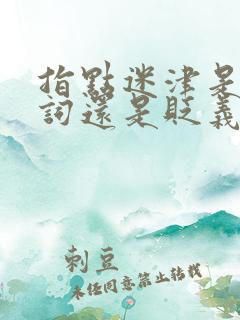 指點迷津是
詞還是貶義
刺豆
未经同意禁止转载